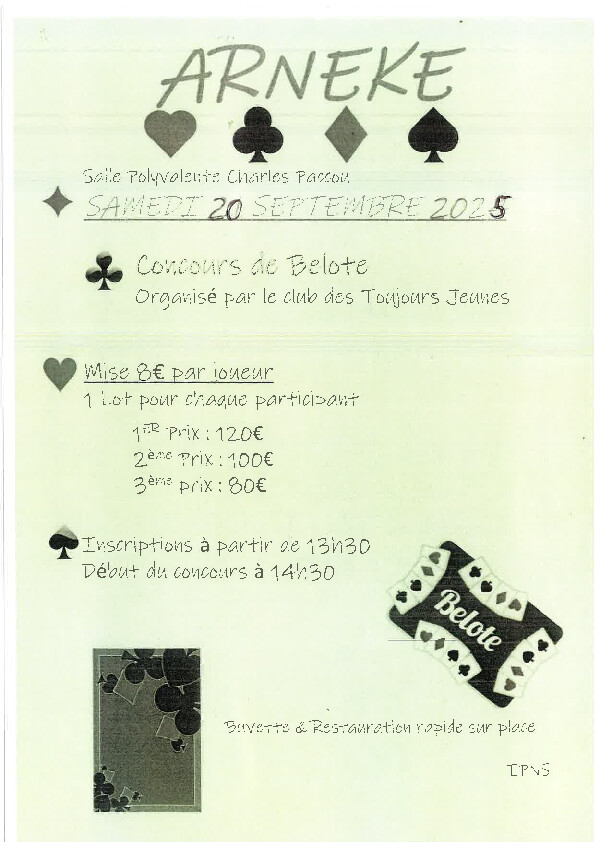 ARNEKE
Salle Polyvalente Charles Passou
SAMEDI 20 SEPTEMBRE 2025
Concours de Belote
Organisé par le club des Toujours Jeunes
Mise 8€ par joueur
1 Lot pour chaque participant
1ER Prix : 120€
2ème Prix : 100€
3ème prix : 80€
Inscriptions à partir de 13h30
Début du concours à 14h30
Belote
Buvette & Restauration rapide sur place
IPNS